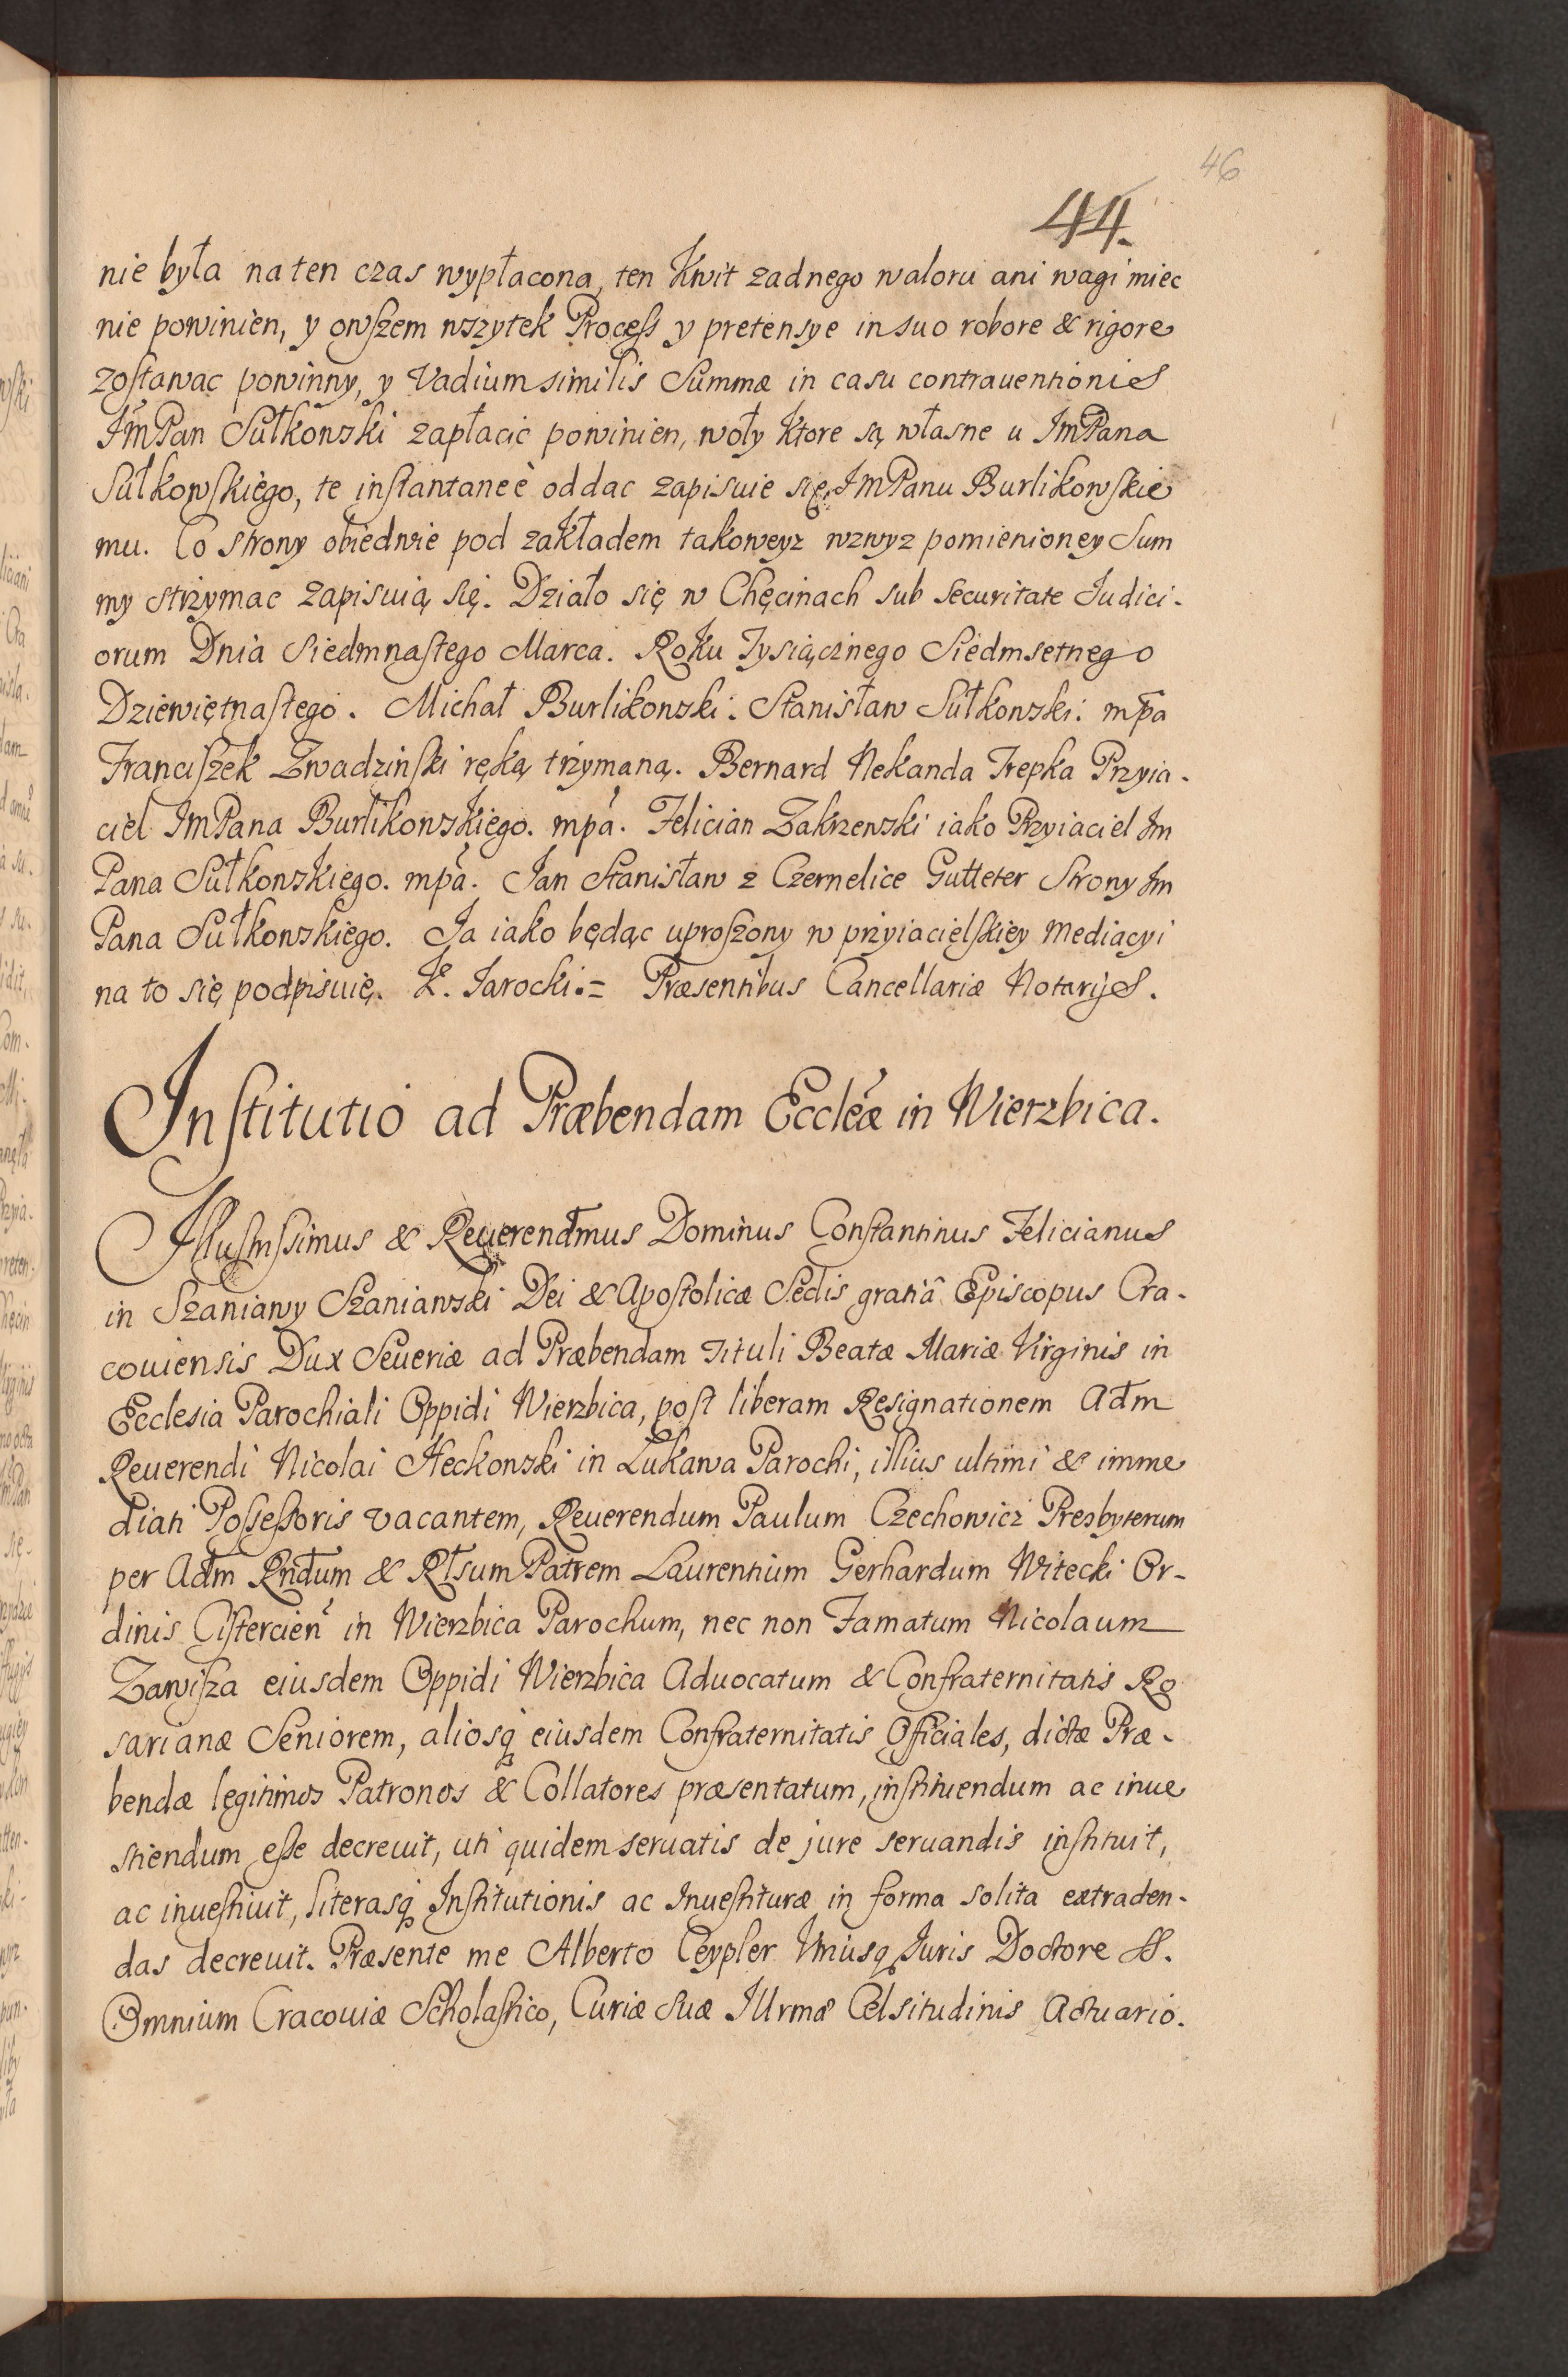 46
44.
nie była na ten czas wypłacona, ten Kwit zadnego waloru ani wagi miec
nie powinien, y owszem wszytek Process y pretensye in suo robore & rigore
zostawac powinny, y Vadium similis Summæ in casu contrauentionis
ImPan Sułkowski zapłacic powinien, woły Ktore są własne u ImPana
Sułkowskiego, te instantaneè oddac zapisuie się ImPanu Burlikowskie
mu. Co strony obiedwie pod zakładem takoweyz wzwyz pomienioney Sum
my strzymac zapisuią się. Działo się w Chęcinach sub securitate Judici-
orum Dnia Siedmnastego Marca. Roku Tysiącznego Siedmsetnego
Dziewiętnastego. Michał Burlikowski. Stanisław Sułkowski: mpa
Franciszek Zwadzinski ręką trzymaną. Bernard Nekanda Trepka Przyia-
ciel ImPana Burlikowskiego. mpa. Felician Zakrzewski iako Przyiaciel Im
Pana Sułkowskiego. mpa. Jan Stanisław z Czernelice Gutteter Strony Im
Pana Sułkowskiego. Ja iako będąc uproszony w przyiacielskiey Mediacyi
na to się podpisuię. Jarocki.= Præsentibus Cancellariæ Notarijs.
Institutio ad Præbendam Eccleæ in Wierzbica.
Illustrissimus & Reuerendmus Dominus Constantinus Felicianus
in Szaniawy Szaniawski Dei & Apostolicæ Sedis gratiâ Episcopus Cra-
couiensis Dux Seueriæ ad Præbendam tituli Beatæ Mariæ Virginis in
Ecclesia Parochiali Oppidi Wierzbica, post liberam Resignationem Adm
Reuerendi Nicolai Heckowski in Łukawa Parochi, illius ultimi & imme
diati Possessoris vacantem, Reuerendum Paulum Czechowicz Presbyterum
per Adm Rndum & Rlsum Patrem Laurentium Gerhardum Witecki Or-
dinis Cistercien in Wierzbica Parochum, nec non Famatum Nicolaum
Zawisza eiusdem Oppidi Wierzbica Aduocatum & Confraternitatis Ro
sarianæ Seniorem, aliosq eiusdem Confraternitatis Officiales, dictæ Præ-
bendæ legitimos Patronos & Collatores præsentatum, instituendum ac inue
stiendum esse decreuit, uti quidem seruatis de jure seruandis instituit,
ac inuestiuit, literasq Institutionis ac Inuestituræ in forma solita extraden-
das decreuit. Præsente me Alberto Ceypler Vtriusq Juris Doctore SS.
Omnium Cracouiæ Scholastico, Curiæ Suæ Illrmæ Celsitudinis Actuario.